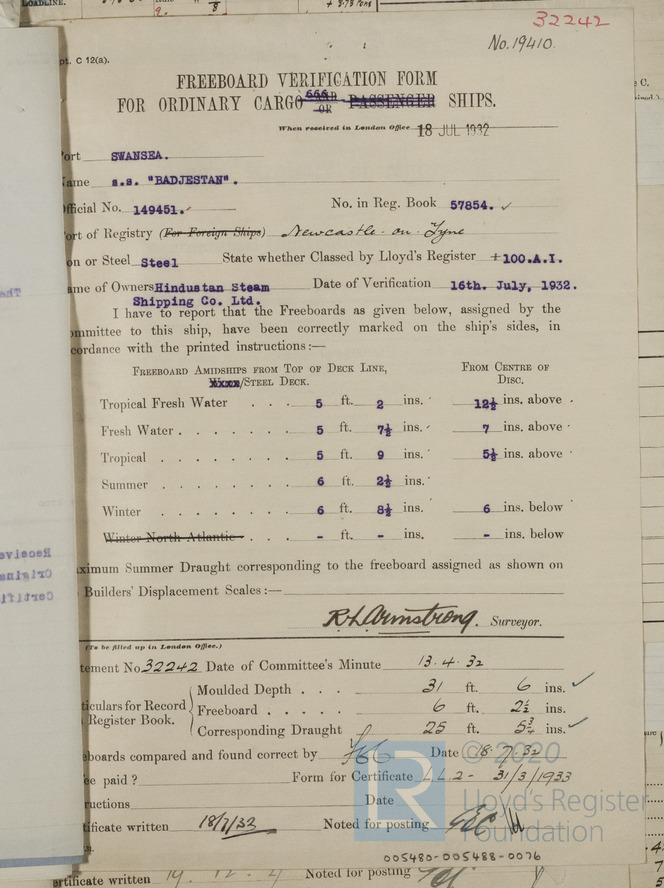 LOADLINE.
32242
No. 19410.
pt. C 12(a).
FREEBOARD VERIFICATION FORM
FOR ORDINARY CARGO OR PASSENGER SHIPS.
When received in London Office 18 JUL 1932
ort SWANSEA.
ame s.s. "BADJESTAN".
fficial No. 149451. No. in Reg. Book 57854.
ort of Registry (For Foreign Ships) Newcastle-on-Tyne
on or Steel Steel State whether Classed by Lloyd's Register +100.A.I.
me of Owners Hindustan Steam Date of Verification 16th. July, 1932.
Shipping Co. Ltd.
I have to report that the Freeboards as given below, assigned by the
ommittee to this ship, have been correctly marked on the ship's sides, in
cordance with the printed instructions:—
FREEBOARD AMIDSHIPS FROM TOP OF DECK LINE, FROM CENTRE OF
/STEEL DECK. DISC.
Tropical Fresh Water . . . 5 ft. 2 ins. 12½ ins. above
Fresh Water . . . . . . . 5 ft. 7½ ins. 7 ins. above
Tropical . . . . . . . 5 ft. 9 ins. 5½ ins. above
Summer . . . . . . . 6 ft. 2½ ins.
Winter . . . . . . . 6 ft. 8½ ins. 6 ins. below
Winter North Atlantic - ft. - ins. - ins. below
ximum Summer Draught corresponding to the freeboard assigned as shown on
Builders' Displacement Scales:—
R.L. Armstrong. Surveyor.
(To be filled up in London Office.)
tement No 32242 Date of Committee's Minute 13.4.32
Moulded Depth . . . 31 ft. 6 ins.
ticulars for Record Freeboard . . . . . 6 ft. 2½ ins.
Register Book. Corresponding Draught 25 ft. 5¾ ins.
eboards compared and found correct by Date 18.7.32
ee paid? Form for Certificate LL2 - 31/3/1933
ructions Date
tificate written 18/7/32 Noted for posting
© 2020
Lloyd's Register
Foundation
005480-005488-0076
ertificate written Noted for posting